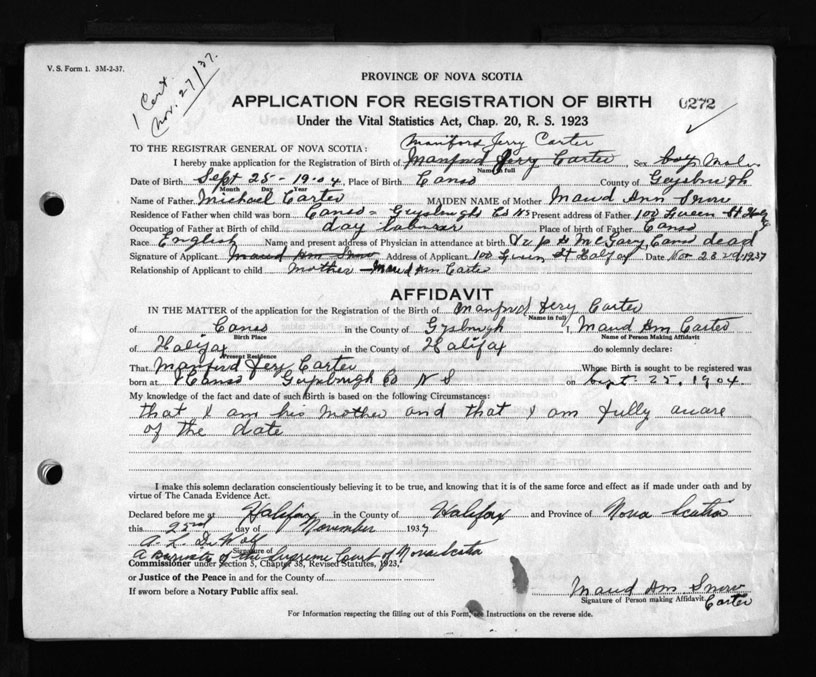 V. S. Form 1. 3M-2-37.
1 Cert.
Nov. 27/37.
PROVINCE OF NOVA SCOTIA
APPLICATION FOR REGISTRATION OF BIRTH 0272
Under the Vital Statistics Act, Chap. 20, R. S. 1923
Maniford Jery Carter
TO THE REGISTRAR GENERAL OF NOVA SCOTIA:
I hereby make application for the Registration of Birth of Manford Jery Carter Sex boy Male
Name in full
Date of Birth Sept 25 - 1904, Place of Birth Canso County of Guysburgh
Month Day Year
Name of Father Michael Carter MAIDEN NAME of Mother Maud Ann Snow
Residence of Father when child was born Canso - Guysburgh Co NS Present address of Father 100 Queen St
Occupation of Father at Birth of child day laborer Place of birth of Father Canso
Race English Name and present address of Physician in attendance at birth McGary, Canso dead
Signature of Applicant Maud Ann Snow Address of Applicant 100 Queen St Halifax Date Nov 23rd 1937
Relationship of Applicant to child Mother - Maud Ann Carter
AFFIDAVIT
IN THE MATTER of the application for the Registration of Birth of Manford Jery Carter
Name in full
of Canso in the County of Gysburgh I, Maud Ann Carter
Birth Place Name of Person Making Affidavit
of Halifax in the County of Halifax do solemnly declare:
Present Residence
That Manford Jery Carter Whose Birth is sought to be registered was
born at Canso Guysburgh Co N S on Sept. 25, 1904.
My knowledge of the fact and date of such Birth is based on the following Circumstances:
that I am his Mother and that I am fully aware
of the date
I make this solemn declaration conscientiously believing it to be true, and knowing that it is of the same force and effect as if made under oath and by
virtue of The Canada Evidence Act.
Declared before me at Halifax in the County of Halifax and Province of Nova Scotia
this 23rd day of November 1937
A. L. DeWolf
Signature of
A Barrister of the Supreme Court of Nova Scotia
Commissioner under Section 5, Chapter 38, Revised Statutes, 1923,
or Justice of the Peace in and for the County of
If sworn before a Notary Public affix seal.
Maud Ann Snow
Signature of Person making Affidavit. Carter
For Information respecting the filling out of this Form, see Instructions on the reverse side.